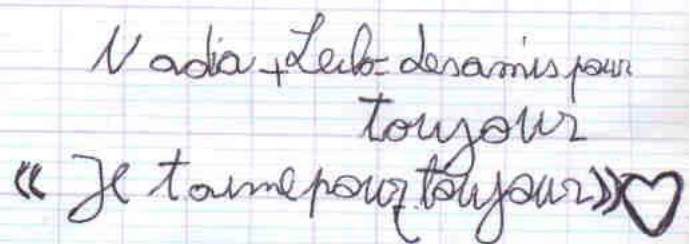 Nadia + Leila = des amis pour
toujour
« Je t'aime pour toujour » ♡